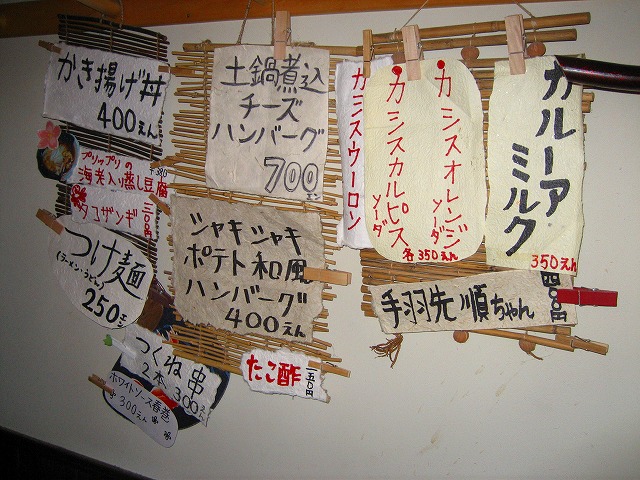 かき揚げ丼
400えん
プリップリの
海老入り蒸し豆腐
タコザンギ
つけ麺
(ラーメン・うどん)
250えん
つくね串
2本 300えん
ホワイトソース春巻
300えん
土鍋煮込
チーズ
ハンバーグ
700
エン
ジャキジャキ
ポテト和風
ハンバーグ
400えん
たこ酢
一五〇円
カシスウーロン
カシスカルピス
ソーダ
カシスオレンジ
ソーダ
各350えん
カルーア
ミルク
350えん
手羽先 順ちゃん